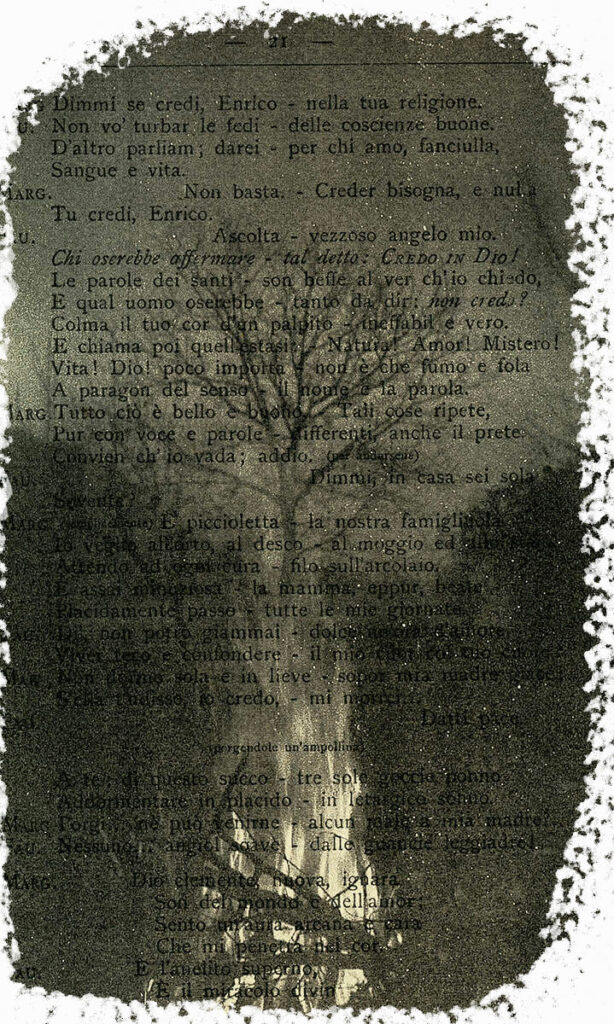 — 21 —
Dimmi se credi, Enrico - nella tua religione.
Non vo' turbar le fedi - delle coscienze buone.
D'altro parliam; darei - per chi amo, fanciulla,
Sangue e vita.
MARG. Non basta. - Creder bisogna, e nulla
Tu credi, Enrico.
AU. Ascolta - vezzoso angelo mio.
Chi oserebbe affermare - tal detto: CREDO IN DIO!
Le parole dei santi - son beffe al ver ch'io chiedo,
E qual uomo oserebbe - tanto da dir: non credo?
Colma il tuo cor d'un palpito - ineffabil e vero.
E chiama poi quell'estasi: Natura! Amor! Mistero!
Vita! Dio! poco importa - non è che fumo e fola
A paragon del senso - il nome e la parola.
MARG. Tutto ciò è bello e buono. Tali cose ripete,
Pur con voce e parole - differenti, anche il prete
Convien ch'io vada; addio. (per andarsene)
AU. Dimmi, in casa sei sola
Sovente?
È piccioletta - la nostra famigliuola
Io veglio all'orto, al desco - al moggio ed alla
Attendo ad ogni cura - filo sull'arcolaio.
È assai minuziosa - la mamma, eppur, beate
Placidamente passo - tutte le mie giornate.
Di, non potrò giammai - dolce
Viver teco e confondere - il mio cor col tuo
Non dormo sola e in lieve - sopor mia madre giace;
S'ella t'udisse, io credo, - mi morrei...
Datti pace.
(porgendole un'ampollina)
A te; di questo succo - tre sole goccie ponno
Addormentare in placido - in letargico sonno.
MARG. Porgi... nè può venirne - alcun male a mia madre?
AU. Nessuno... angiol soave - dalle guancie leggiadre!
MARG. Dio clemente, nuova, ignara
Son del mondo e dell'amor;
Sento un'aura arcana e cara
Che mi penetra nel cor.
AU. E l'anelito superno,
E il miracolo divin